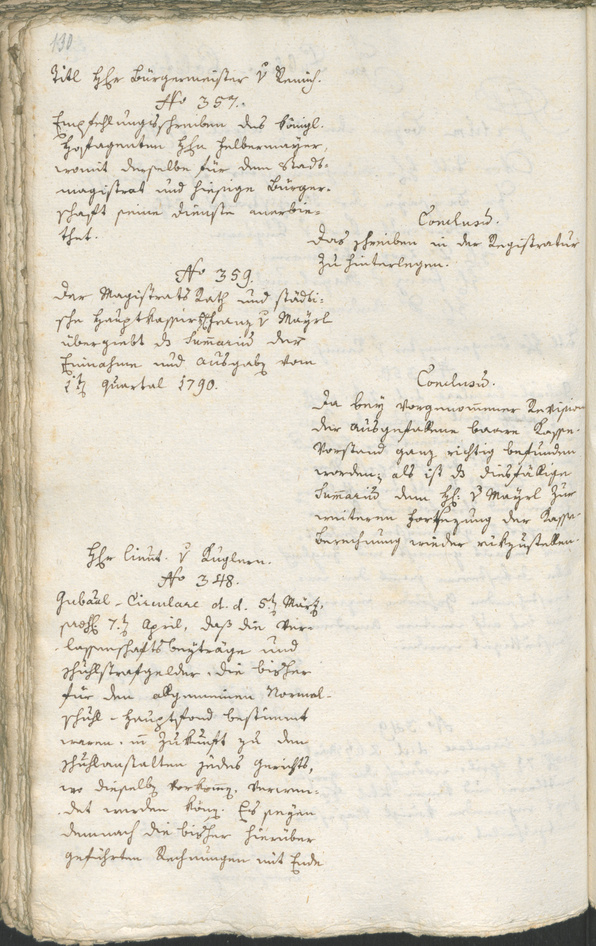 130
Titl Hhr Bürgermeister v Remich.
No 357.
Empfehlungsschreiben des königl.
Hofagenten Hhn Helbermayer,
womit derselbe für dem Stadt-
magistrat und hiesige Bürger-
schaft seine Dienste anerbie-
thet.
Conclusũ.
Das schreiben in der Registratur
zu hinterlegen.
No 359.
Der Magistrats Rath und städti-
sche Hauptkassier Franz v Mayrl
übergiebt ds Sum̃ariũ der
Einnahme und Ausgabe vom
1t Quartal 1790.
Conclusũ.
Da bey vorgenom̃ener Revision
der ausgefallene baare Kasse-
Vorstand ganz richtig befunden
worden; als ist ds diesfällige
Sum̃ariũ dem Hh: v Mayrl zur
weiteren Fortsezung der Kasse-
berechnung wieder rükzustellen.
Hhr Lieut. v Kuglern.
No 348.
Gubãal-Circulare d. d. 5t März,
7t April, daß die Ver-
lassenschaftsbeyträge und
schuhlstrafgelder, die bisher
für den allgemeinen Normal-
schuhl-Hauptfond bestimmt
waren, in Zukunft zu den
schuhlanstalten jedes Gerichts,
wo dieselbe vorkom̃, verwen-
det werden könn. Es seyen
demnach die bisher hierüber
geführten Rechnungen mit Ende